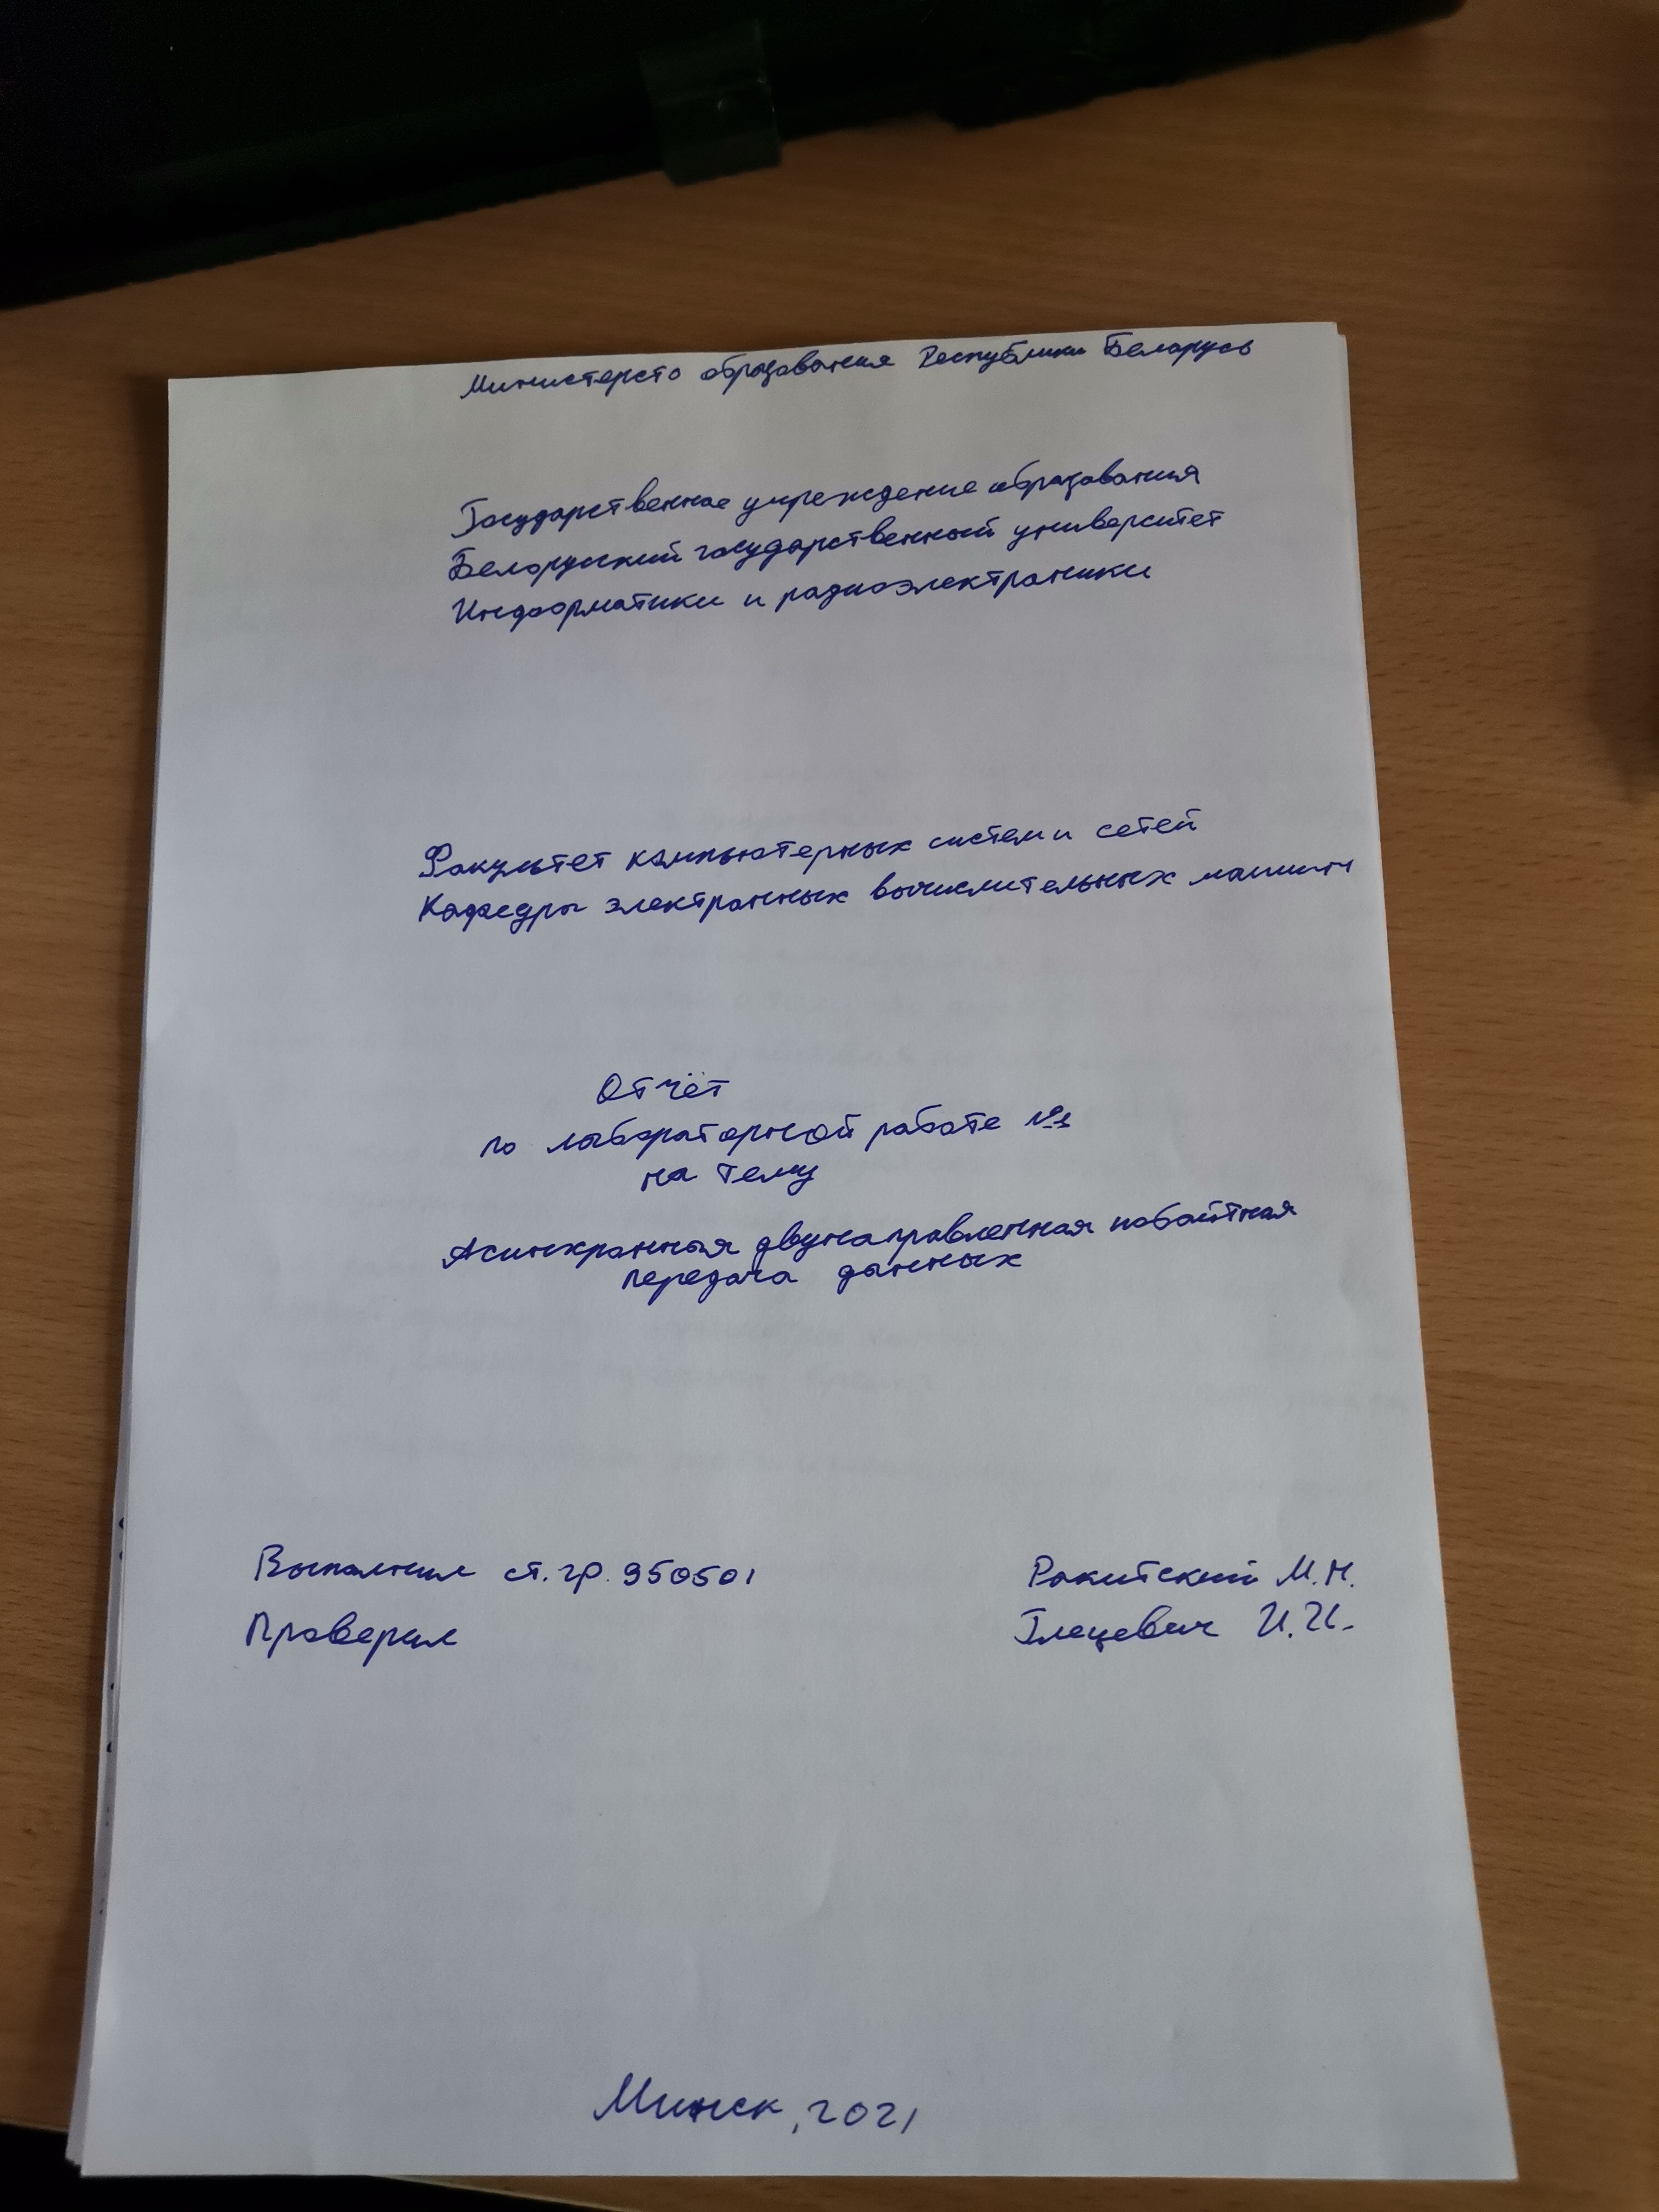 Министерсто образования Республики Беларусь
Государственное учреждение образования
Белоруский государственный университет
Информатики и радиоэлектроники
Факультет компьютерных систем и сетей
Кафедры электронных вычислительных машин
Отчёт
по лабораторной работе №1
на тему
Асинхронная двунаправленная побайтная
передача данных
Выполнил ст. гр. 950501 Ракитский М.Н.
Проверил Глецевич И.И.
Минск, 2021